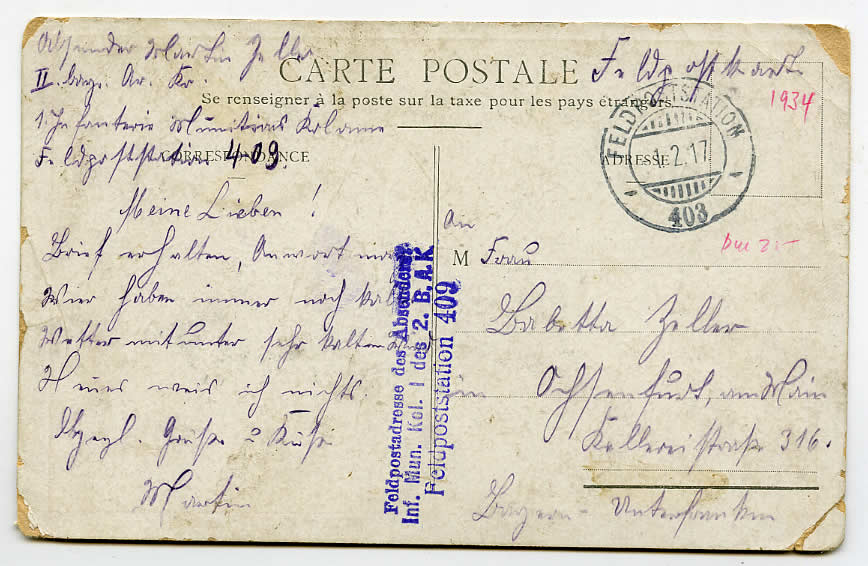 Absender Martin Zeller
II. bayr. Ar. Kr.
1. Infanterie Munitions Kolonne
Feldpoststation 409.
Feldpostkarte
CARTE POSTALE
Se renseigner à la poste sur la taxe pour les pays étrangers
CORRESPONDANCE
ADRESSE
1934
FELDPOSTSTATION
1.2.17
403
Meine Lieben!
Brief erhalten, Anwort
Wier haben immer noch
Wetter mitunter sehr kalten
Neues weis ich nichts.
Grüße u Küße
Martin
Feldpostadresse des Absenders:
Inf. Mun. Kol. 1 des 2. B.A.K
Feldpoststation 409
An
M Frau
Babetta Zeller
in Ochsenfurt, am Main
Kellereistraße 316.
Bayern - Unterfranken